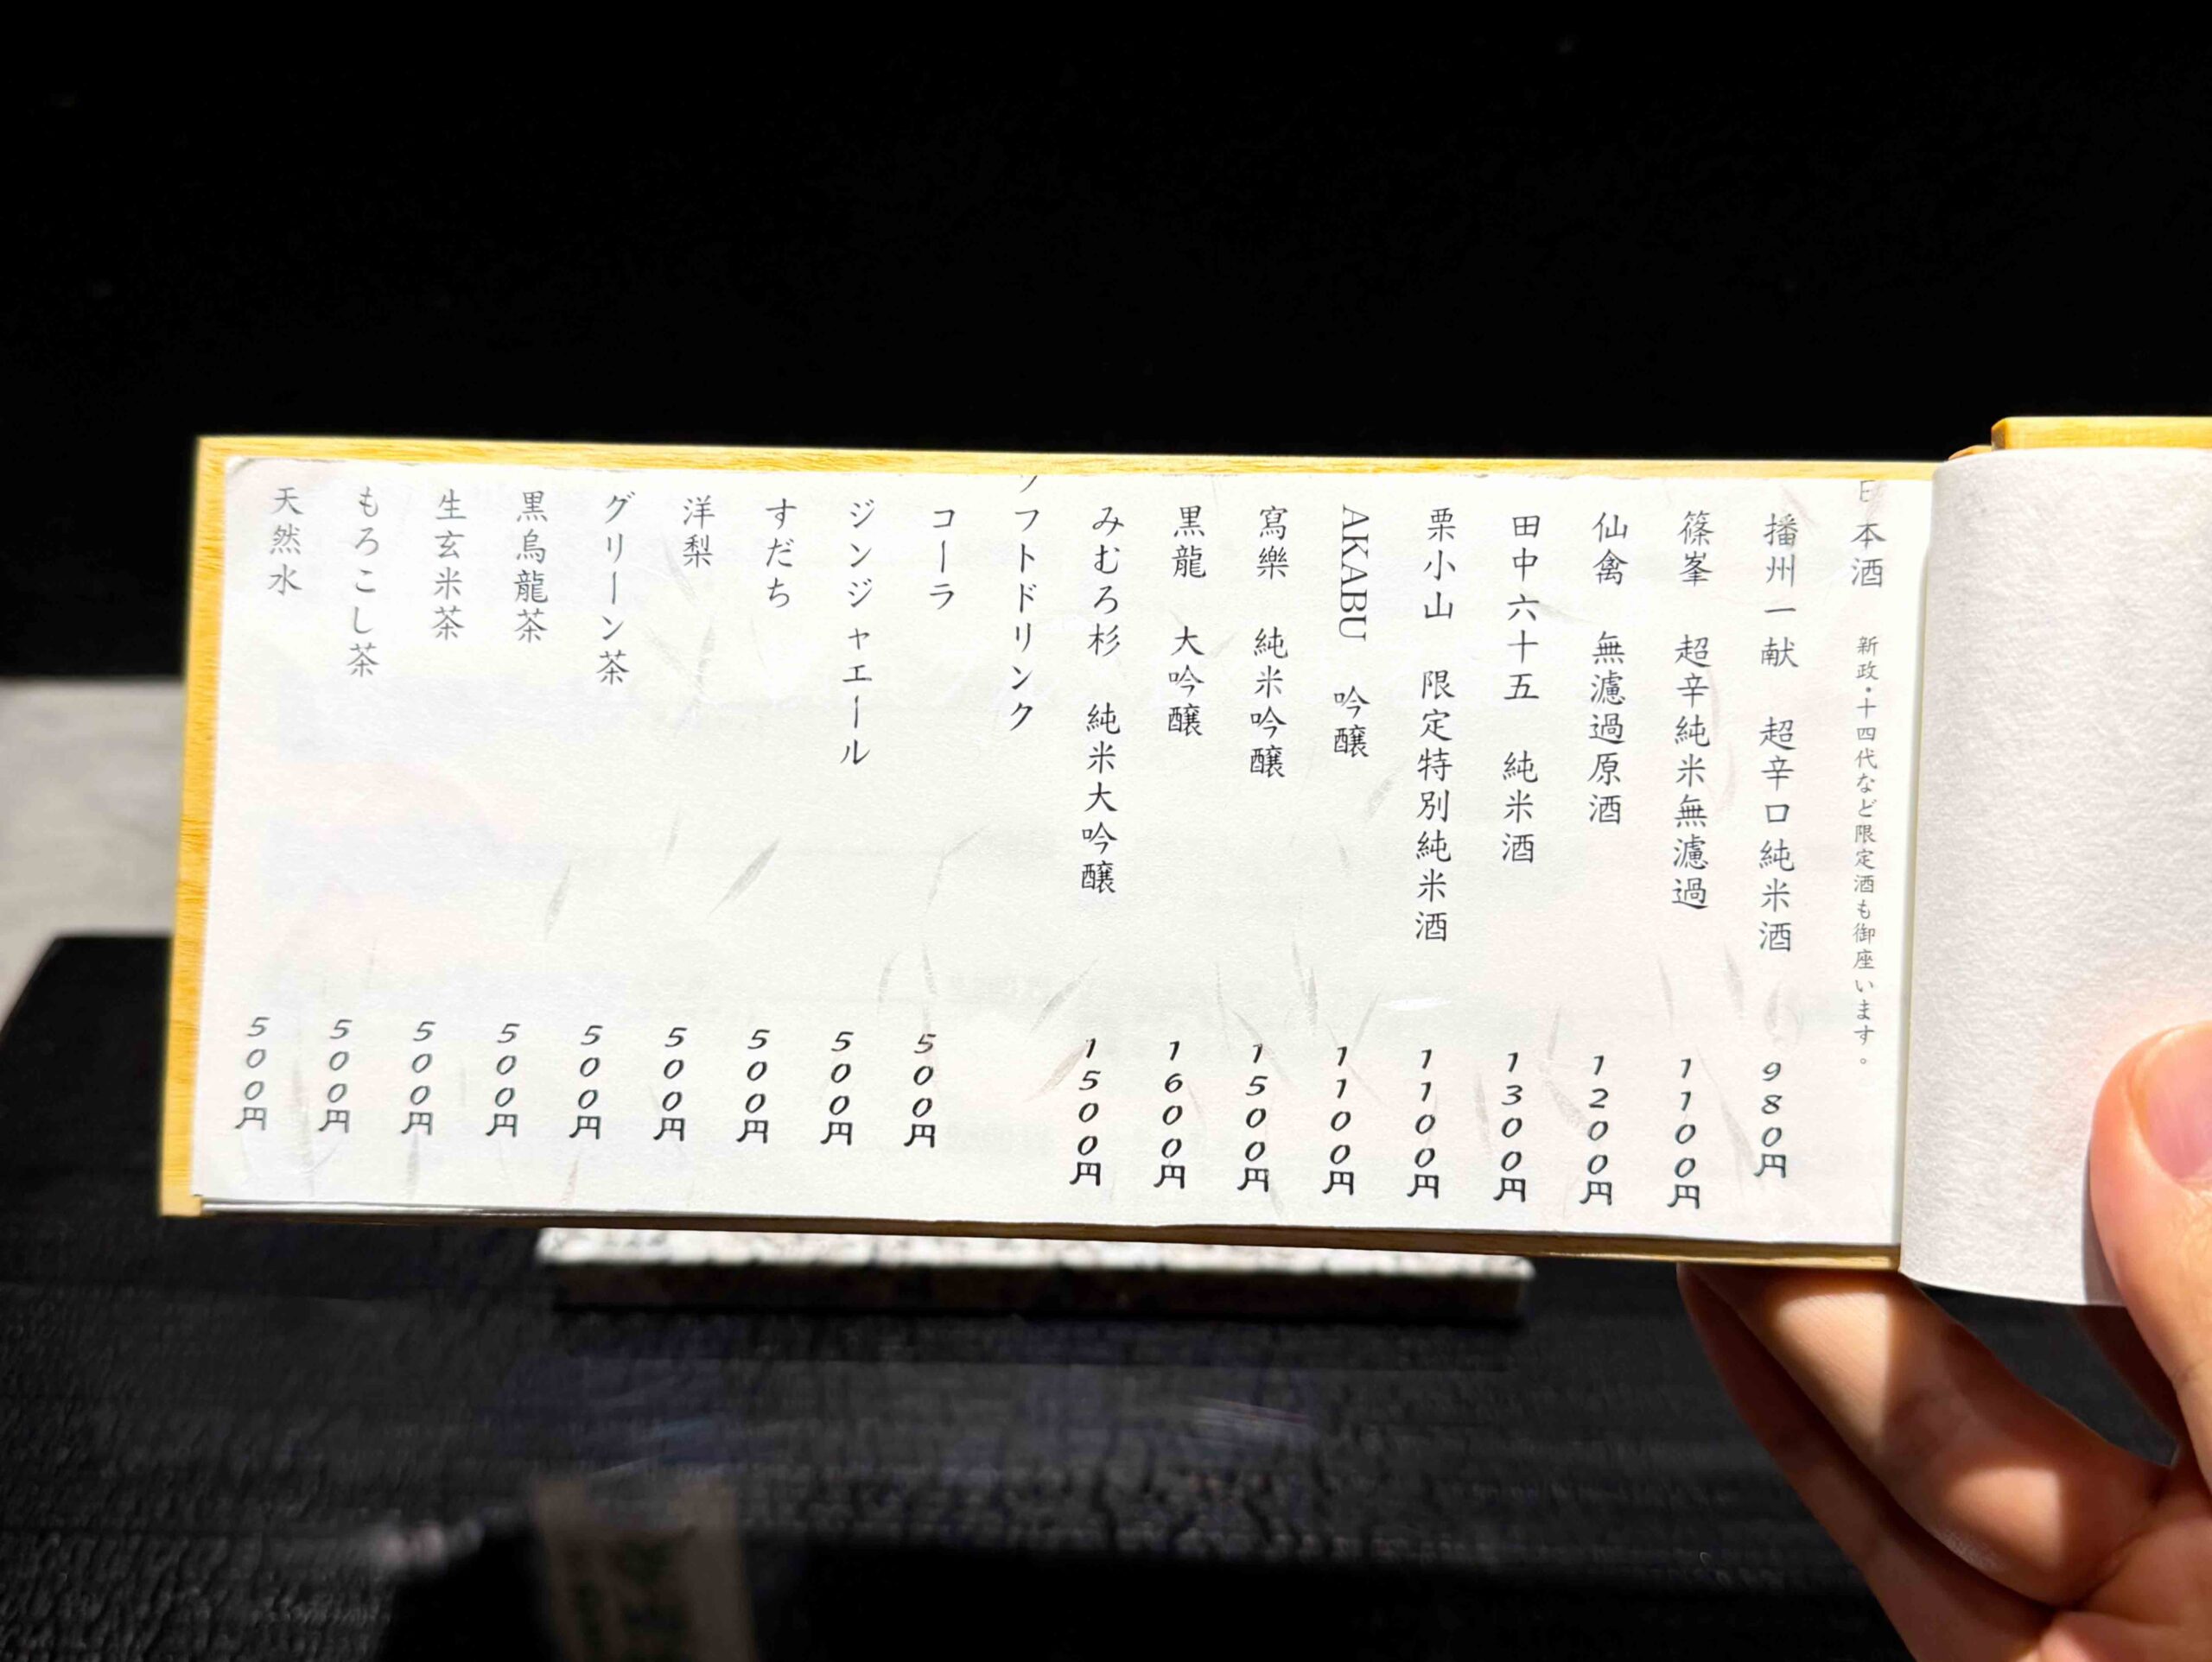 日本酒 新政・十四代など限定酒も御座います。
播州一献 超辛口純米酒 980円
篠峯 超辛純米無濾過 1100円
仙禽 無濾過原酒 1200円
田中六十五 純米酒 1300円
栗小山 限定特別純米酒 1100円
AKABU 吟醸 1100円
寫樂 純米吟醸 1500円
黒龍 大吟醸 1600円
みむろ杉 純米大吟醸 1500円
ソフトドリンク
コーラ 500円
ジンジャエール 500円
すだち 500円
洋梨 500円
グリーン茶 500円
黒烏龍茶 500円
生玄米茶 500円
もろこし茶 500円
天然水 500円